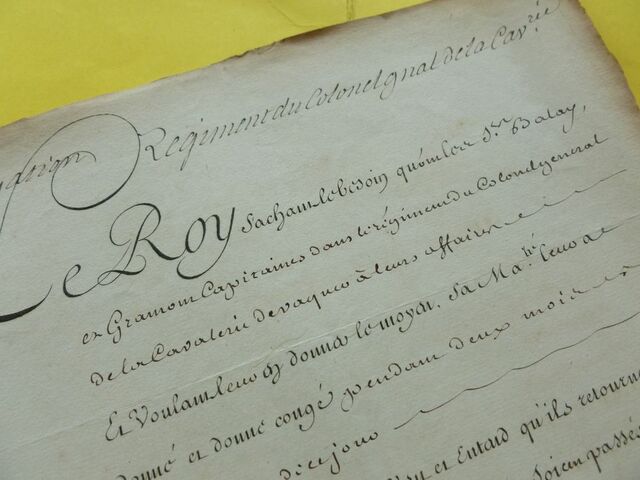 Régiment du Colonel gnal de la Cavrie
Le Roy Sachant le besoin qu'ont les Srs Balay,
et Gramont Capitaines dans le régiment du Colonel general
de la Cavalerie de vaquer à leurs affaires
Et Voulant leur en donner le moyen. Sa Maté leur a
donné et donne congé pendant deux mois
dice jour
et Entend qu'ils retourne
Soient passés